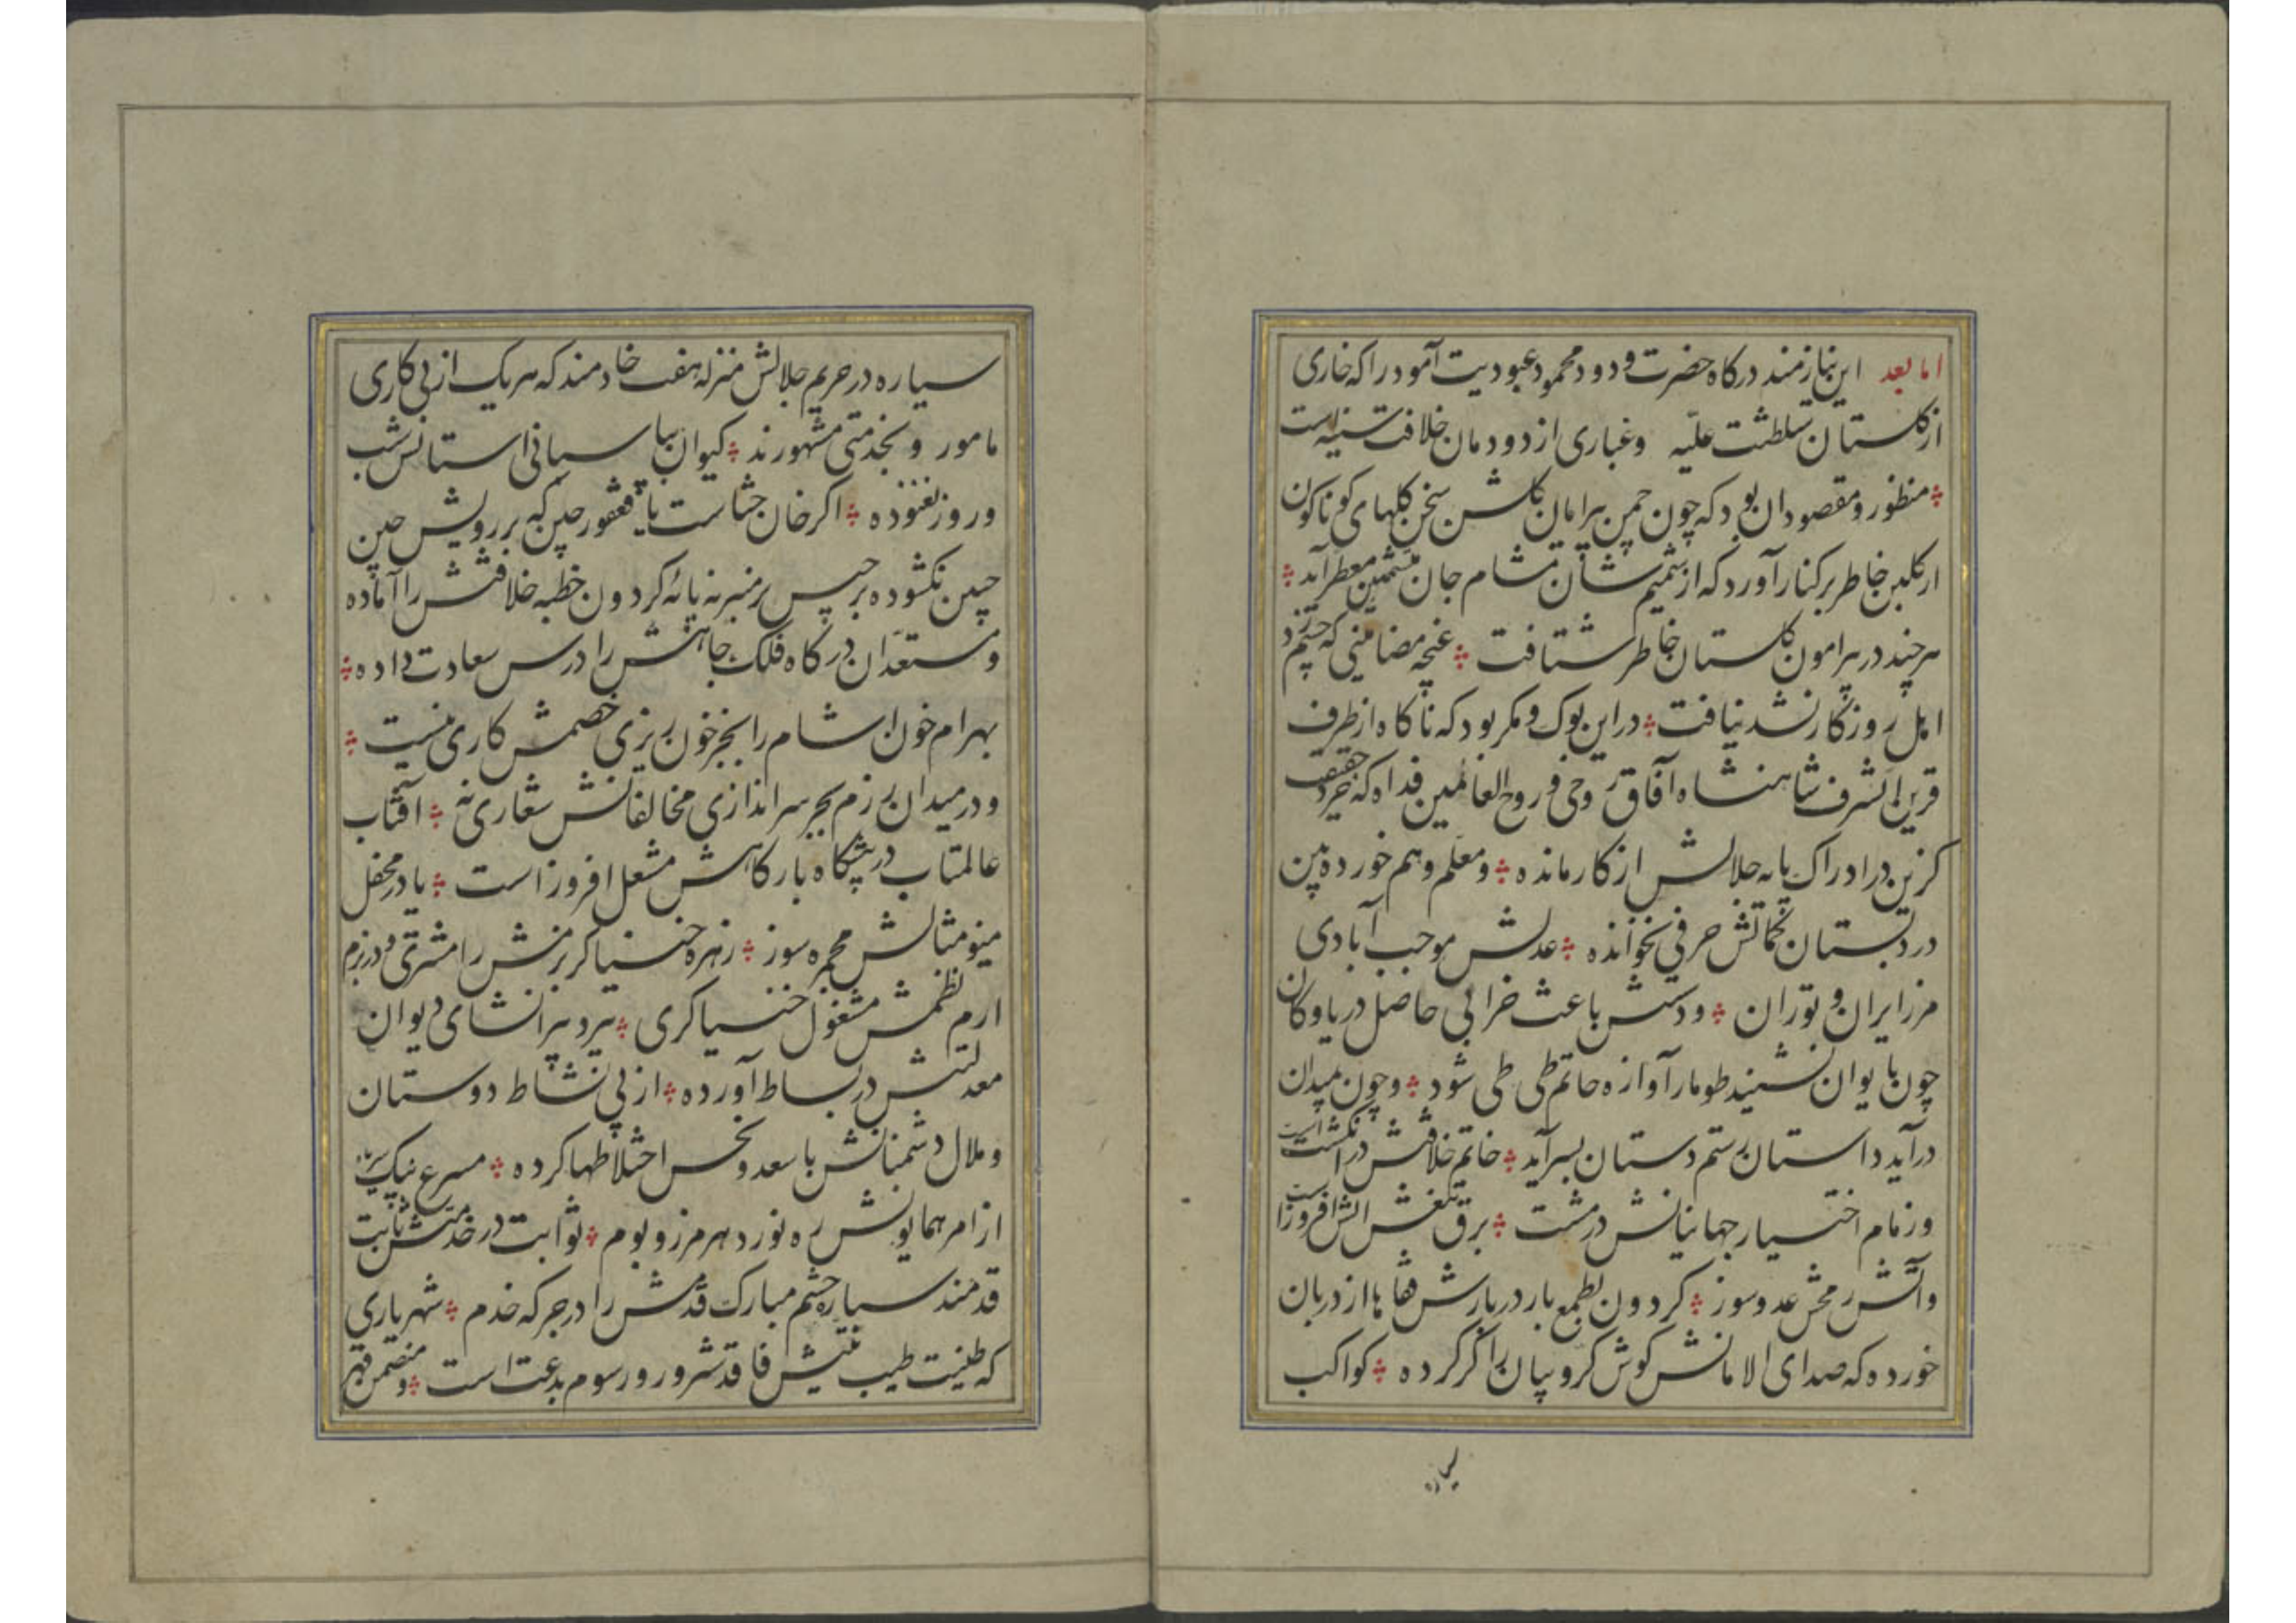 اما بعد این نیازمند درکاه حضرت ودود محمود عبودیت آمود را که خاری
از کلستان سلطنت علیّه وغباری از دودمان خلافت سنیه است
منظور ومقصود ان بود که چون چمن پیرامان کلشن سخن کلهای کوناکون
از کلبن خاطر برکنار آورد که از شمیم شان مشام جان مشمین معطر آید
هرچند در پیرامون کلستان خاطر شتافت غنچه مضامینی که چشم زد
اهل روزکار نشد نیافت در این بوک ومکر بود که ناکاه از طرف
قرین الشرف شاهنشاه آفاق روحی وروح العالمین فداه که خرد حقیقت
کزین در ادراک پایه جلالش از کار مانده ومعلم وهم خورده بین
در دبستان حرفی نخوانده عدلش موجب آبادی
مرز ایران وتوران ودستش باعث خرابی حاصل دریا وکان
چون بایوان نشیند طومار آوازه حاتم طی طی شود وچون بمیدان
درآید داستان رستم دستان بسر آید خاتم خلافتش در انکشت است
وزمام اختیار جهانیانش در مشت برق تیغش اتش افروز است
وآتش رمحش عدوسوز کردون بطمع بار دربارش قفاها از دربان
خورده که صدای الامانش کوش کروبیان را کر کرده کواکب
سیاره
سیاره در حریم جلالش منزله هفت خادمند که هریک از پی کاری
مامور وبخدمتی مشهورند کیوان بپاسبانی استانش شب
وروز نغنوده اکر خان ختاست یا فغفور چین که بر رویش چین
جبین نکشوده برجیس بر منبر نه پائه کردون خطبه خلافتش را آماده
ومستعدان درکاه فلک جاهش را درس سعادت داده
بهرام خون اشام را بجز خون ریزی خصمش کاری نیست
ودر میدان رزم بجز سر اندازی مخالفانش شعاری نه آفتاب
عالمتاب در پیشکاه بارکاهش مشعل افروز است یا در محفل
مینو مثالش مجمره سوز زهره خنیاکر بزمش را مشتری ودر بزم
ارم نظمش مشغول خنیاکری تیر دبیر انشای دیوان
معدلتش در بساط آورده از پی نشاط دوستان
وملال دشمنانش با سعد ونحس اختلاطها کرده مسرع نیک پی ماه
از امر همایونش ره نورد هر مرز وبوم ثوابت در خدمتش ثابت
قدمند سیاره چشم مبارک قدمش را در جرکه خدم شهریاری
که طینت طیب فاقد شرور ورسوم بدعت است ومتضمن قهر